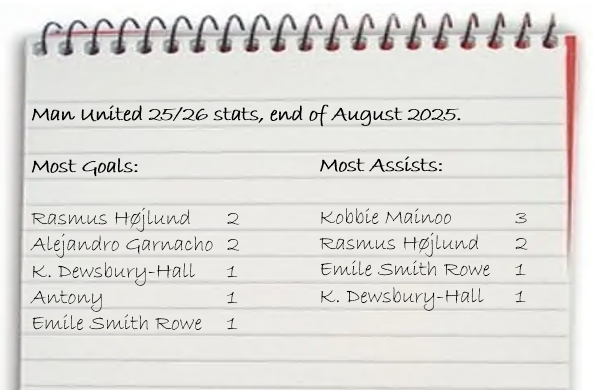 Man United 25/26 stats, end of August 2025.
Most Goals: Most Assists:
Rasmus Højlund 2 Kobbie Mainoo 3
Alejandro Garnacho 2 Rasmus Højlund 2
K. Dewsbury-Hall 1 Emile Smith Rowe 1
Antony 1 K. Dewsbury-Hall 1
Emile Smith Rowe 1